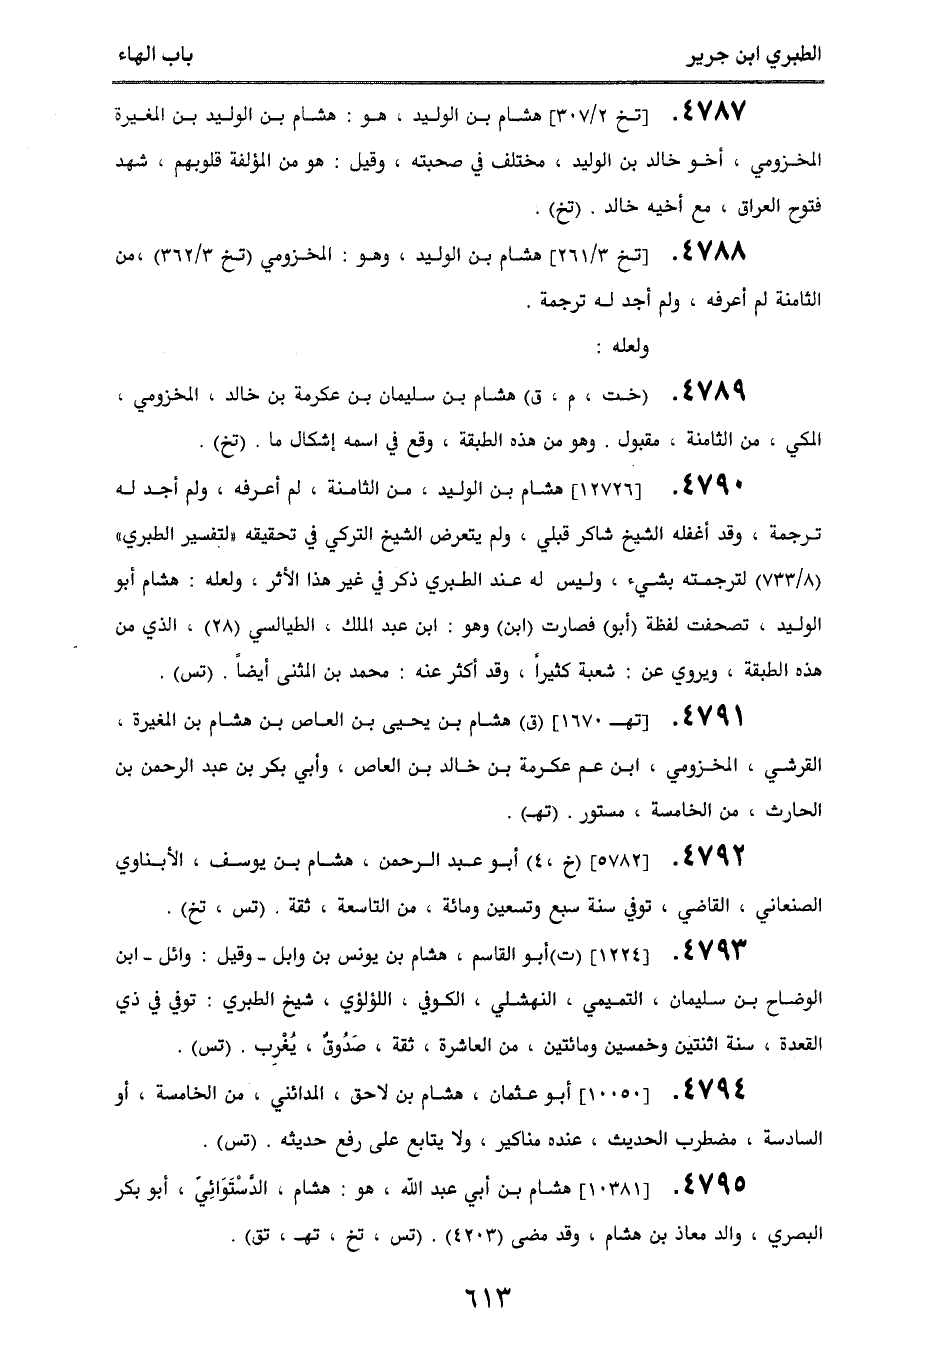 الطبري ابن جرير باب الهاء
٤٧٨٧. [تخ ٣٠٧/٢] هشام بن الوليد ، هو : هشام بن الوليد بن المغيرة
المخزومي ، أخو خالد بن الوليد ، مختلف في صحبته ، وقيل : هو من المؤلفة قلوبهم ، شهد
فتوح العراق ، مع أخيه خالد . (تخ) .
٤٧٨٨. [تخ ٢٦١/٣] هشام بن الوليد ، وهو : المخزومي (تخ ٣٦٢/٣) ،من
الثامنة لم أعرفه ، ولم أجد له ترجمة .
ولعله :
٤٧٨٩. (خت ، م ، ق) هشام بن سليمان بن عكرمة بن خالد ، المخزومي ،
المكي ، من الثامنة ، مقبول . وهو من هذه الطبقة ، وقع في اسمه إشكال ما . (تخ) .
٤٧٩٠. [١٢٧٢٦] هشام بن الوليد ، من الثامنة ، لم أعرفه ، ولم أجد له
ترجمة ، وقد أغفله الشيخ شاكر قبلي ، ولم يتعرض الشيخ التركي في تحقيقه «لتفسير الطبري»
(٧٣٣/٨) لترجمته بشيء ، وليس له عند الطبري ذكر في غير هذا الأثر ، ولعله : هشام أبو
الوليد ، تصحفت لفظة (أبو) فصارت (ابن) وهو : ابن عبد الملك ، الطيالسي (٢٨) ، الذي من
هذه الطبقة ، ويروي عن : شعبة كثيراً ، وقد أكثر عنه : محمد بن المثنى أيضاً . (تس) .
٤٧٩١. [تهـ ١٦٧٠] (ق) هشام بن يحيى بن العاص بن هشام بن المغيرة ،
القرشي ، المخزومي ، ابن عم عكرمة بن خالد بن العاص ، وأبي بكر بن عبد الرحمن بن
الحارث ، من الخامسة ، مستور . (تهـ) .
٤٧٩٢. [٥٧٨٢] (خ ،٤) أبو عبد الرحمن ، هشام بن يوسف ، الأبناوي
الصنعاني ، القاضي ، توفي سنة سبع وتسعين ومائة ، من التاسعة ، ثقة . (تس ، تخ) .
٤٧٩٣. [١٢٢٤] (ت)أبو القاسم ، هشام بن يونس بن وابل - وقيل : وائل - ابن
الوضاح بن سليمان ، التميمي ، النهشلي ، الكوفي ، اللؤلؤي ، شيخ الطبري : توفي في ذي
القعدة ، سنة اثنتين وخمسين ومائتين ، من العاشرة ، ثقة ، صَدُوقٌ ، يُغْرِب . (تس) .
٤٧٩٤. [١٠٠٥٠] أبو عثمان ، هشام بن لاحق ، المدائني ، من الخامسة ، أو
السادسة ، مضطرب الحديث ، عنده مناكير ، ولا يتابع على رفع حديثه . (تس) .
٤٧٩٥. [١٠٣٨١] هشام بن أبي عبد الله ، هو : هشام ، الدَّسْتَوَائِيّ ، أبو بكر
البصري ، والد معاذ بن هشام ، وقد مضى (٤٢٠٣) . (تس ، تخ ، تهـ ، تق) .
٦١٣